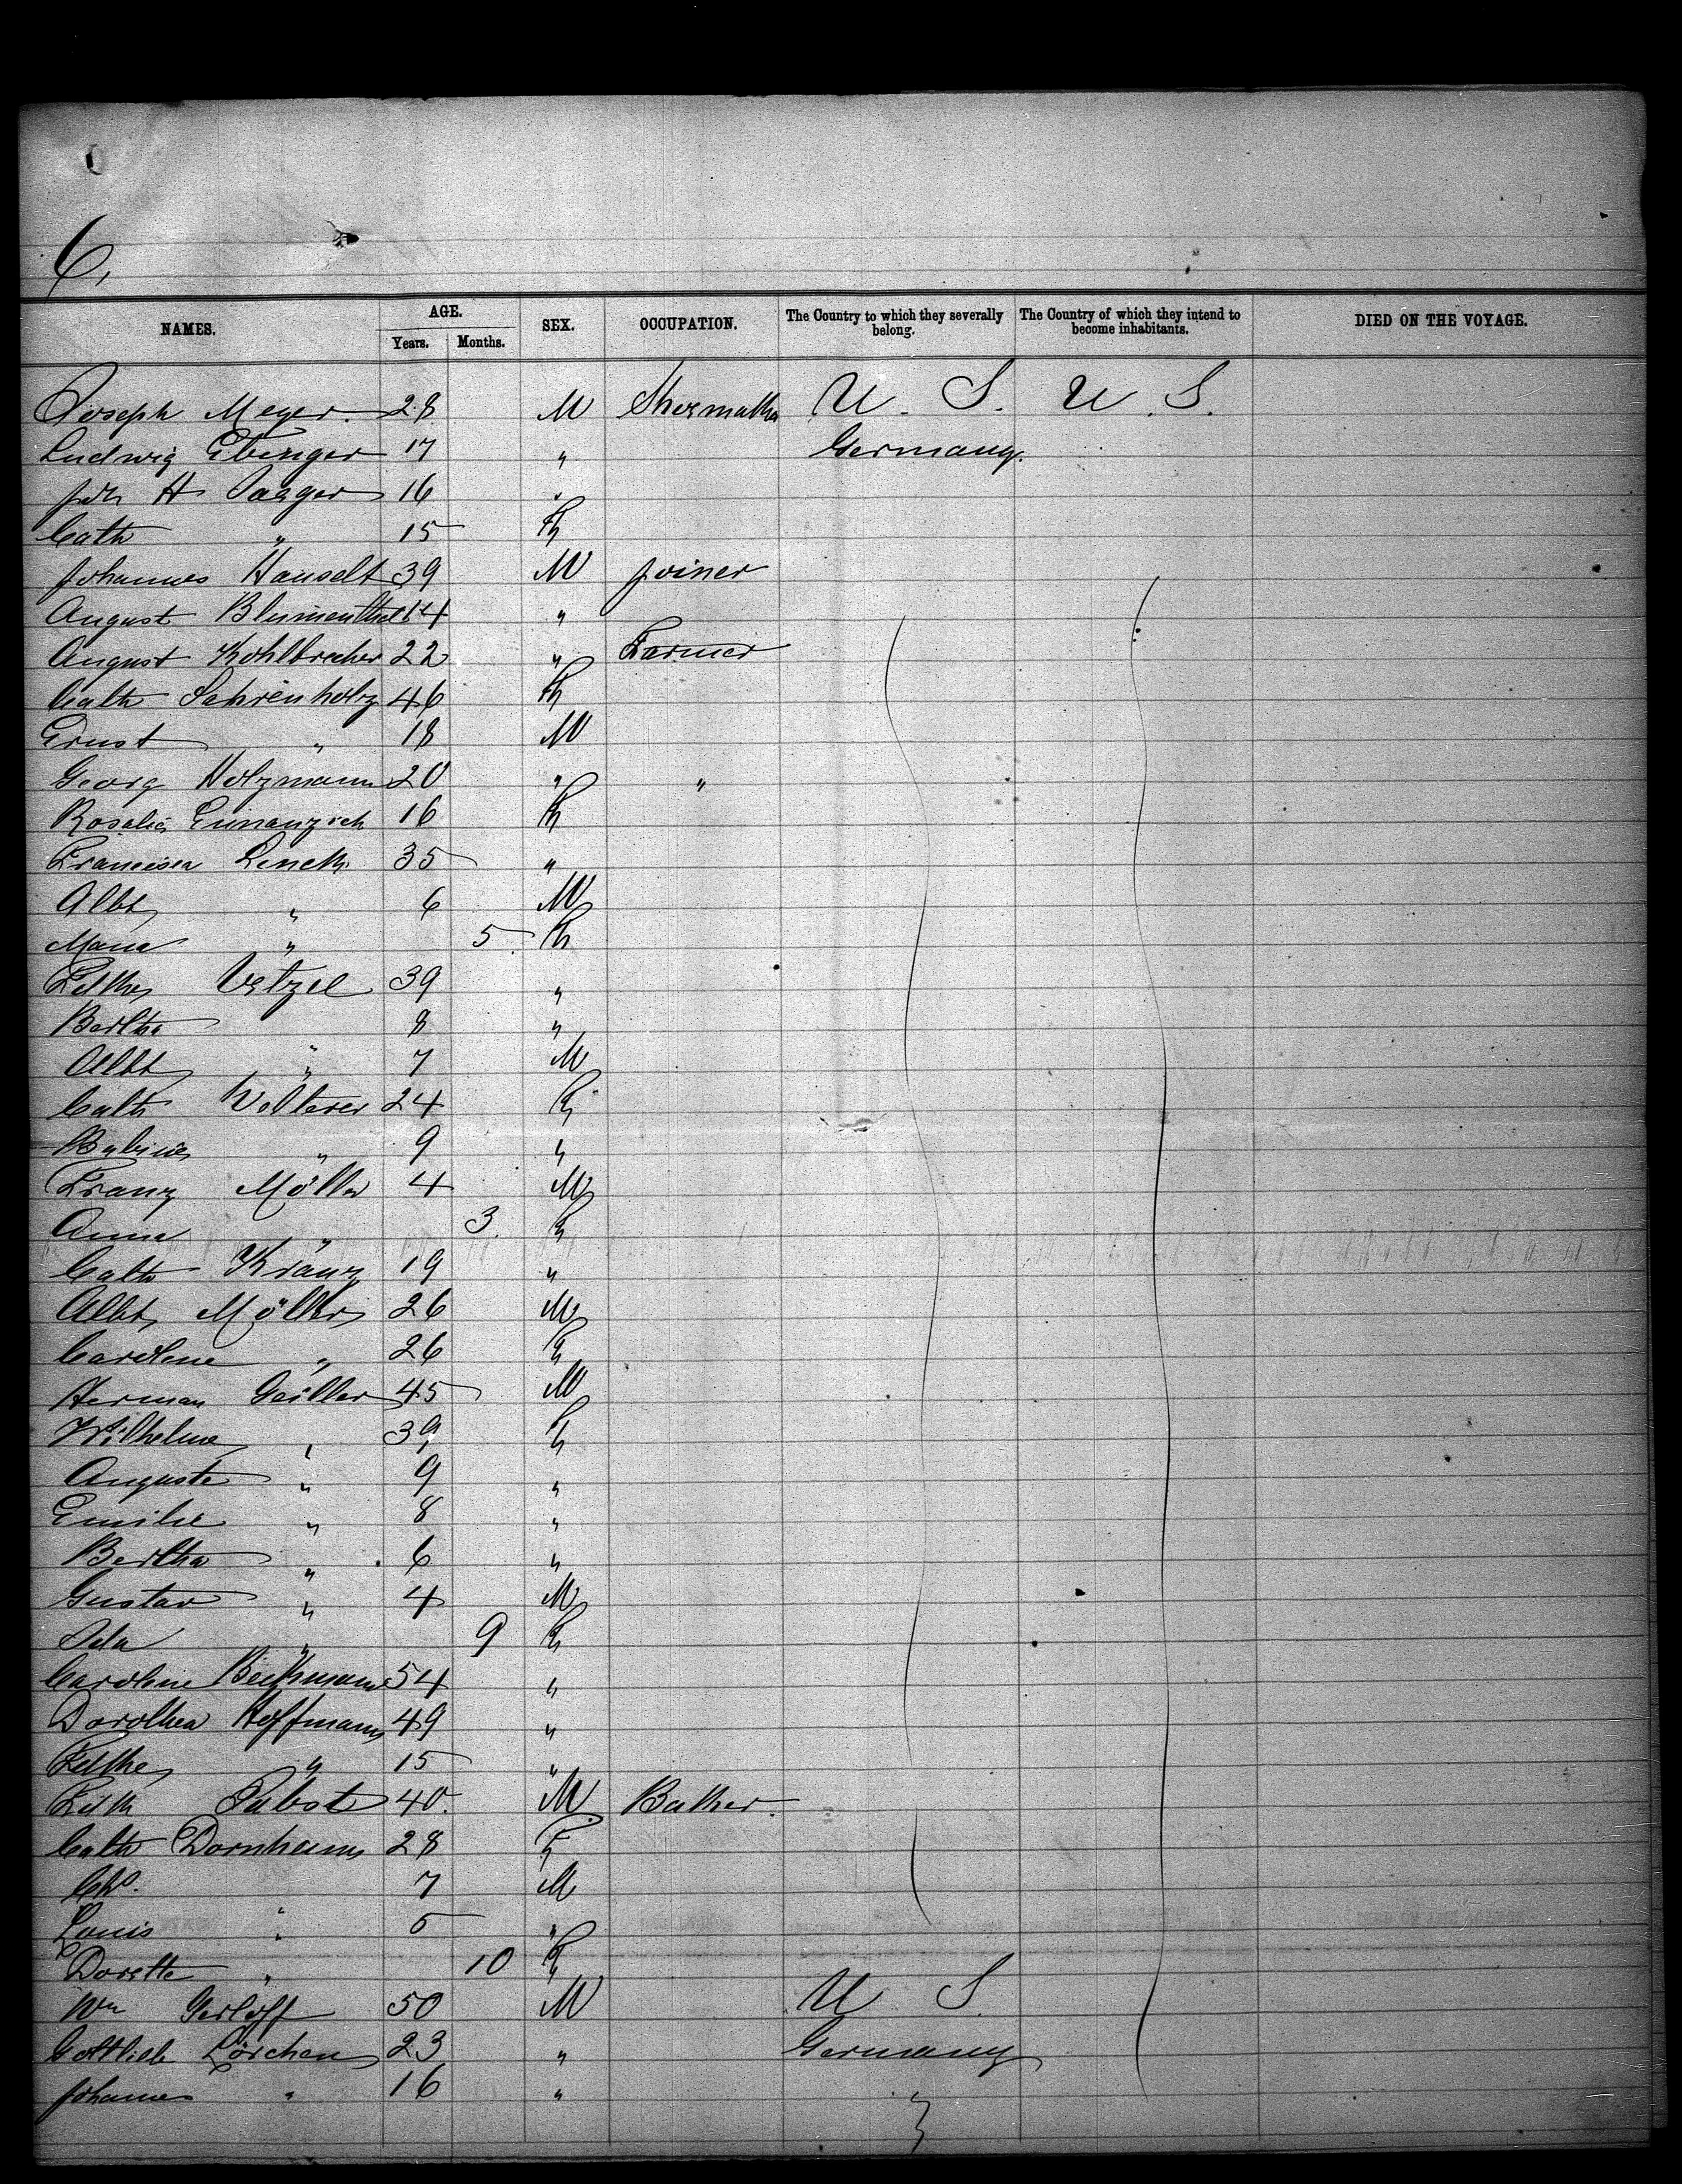 6,
NAMES. AGE. Years. Months. SEX. OCCUPATION. The Country to which they severally belong. The Country of which they intend to become inhabitants. DIED ON THE VOYAGE.
Joseph Meyer. 28 M U. S. U. S.
Ludwig Ebinger 17 " Germany.
Joh H Jaeger 16 "
Cath " 15 F
Johannes Hanselt 39 M Joiner
August Blumenthal 14 "
August Kohlbrecher 22 " Farmer
Cath Schrenholz 46 F
Ernst " 18 M
Georg Holzmann 20 " "
Rosalia 16 F
Francisca 35 "
Albt " 6 M
Maria " 5 F
39 "
Bertha 8 "
Albt " 7 M
Cath Wolterer 24 F
" 9 "
Franz Möller 4 M
Anna " 3. F
Cath Kränz 19 "
Albt Möller 26 M
Caroline " 26 F
Herman Geiller 45 M
Wilhelme " 39 F
Auguste " 9 "
Emilie " 8 "
Bertha " 6 "
Gustav " 4 M
Ida " 9 F
Caroline Beckmann 54 "
Dorothea Hoffmann 49 "
" 15 "
Pabst 40. M
Cath Dornheim 28 F
Chs. 7 M
Louis " 5 "
Dorette " 10 F
Wm Gerloff 50 M U S.
Gottlieb Lörchen 23 " Germany
Johannes " 16 " "